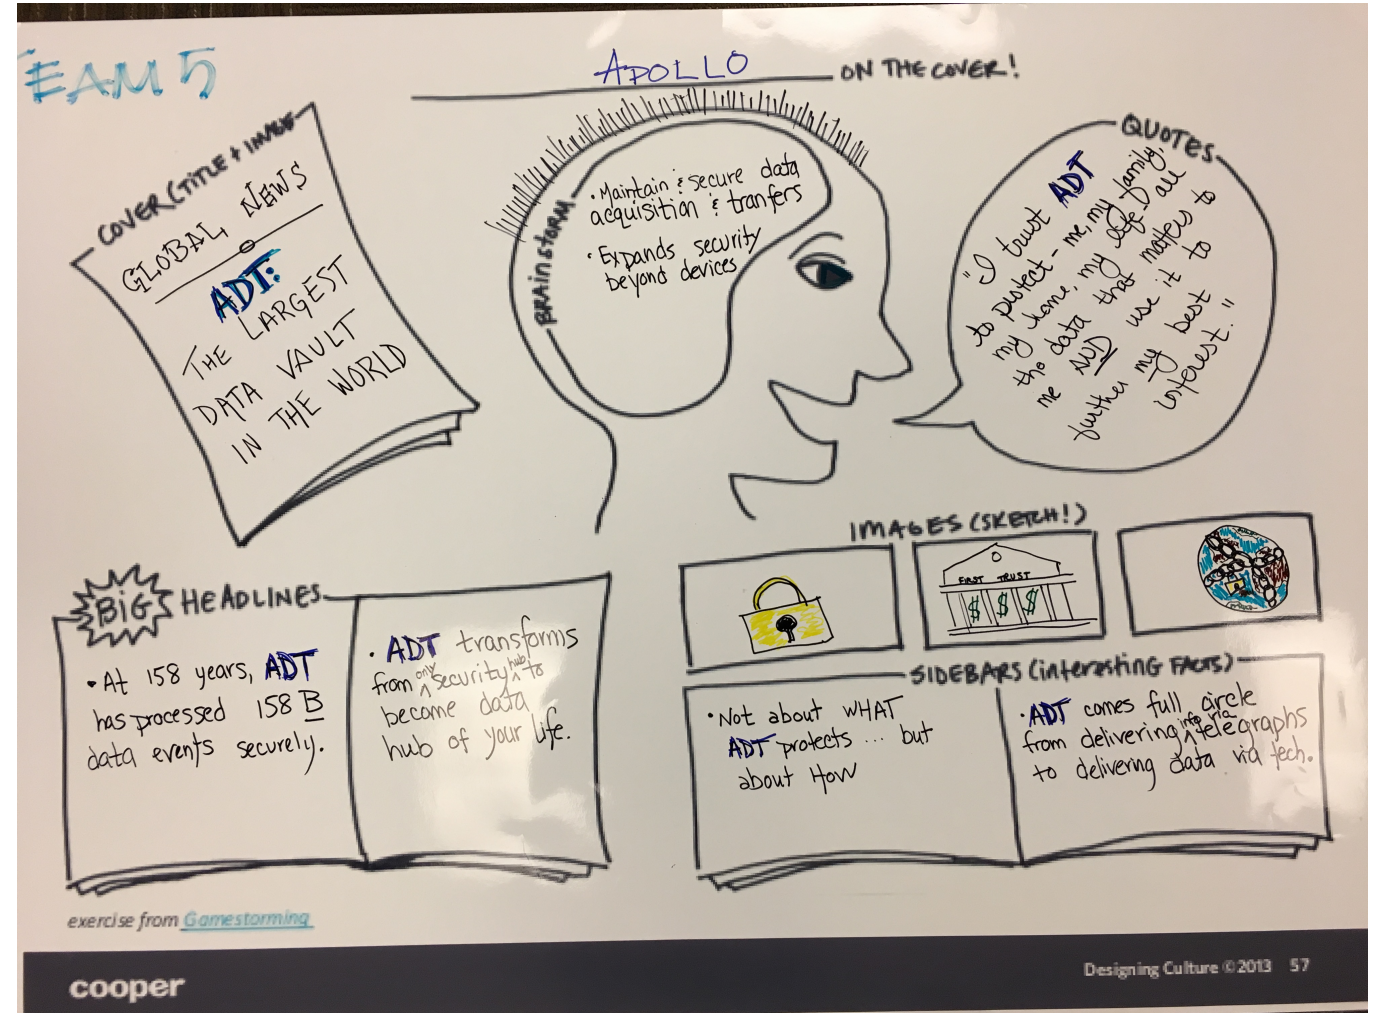 TEAM 5
APOLLO ON THE COVER!
COVER (TITLE + IMAGE
GLOBAL NEWS
ADT:
THE LARGEST
DATA VAULT
IN THE WORLD
BRAINSTORM
• Maintain & secure data
acquisition & tranfers
• Expands security
beyond devices
QUOTES
"I trust ADT
to protect - me, my family,
my home, my life & all
the data that matters to
me AND use it to
further my best
interest."
IMAGES (SKETCH!)
FIRST TRUST
$ $ $
BIG HEADLINES
• At 158 years, ADT
has processed 158 B
data events securely.
• ADT transforms
from only security hub to
become data
hub of your life.
SIDEBARS (interesting FACTS)
• Not about WHAT
ADT protects ... but
about HOW
• ADT comes full circle
from delivering info via telegraphs
to delivering data via tech.
exercise from Gamestorming
cooper
Designing Culture ©2013 57